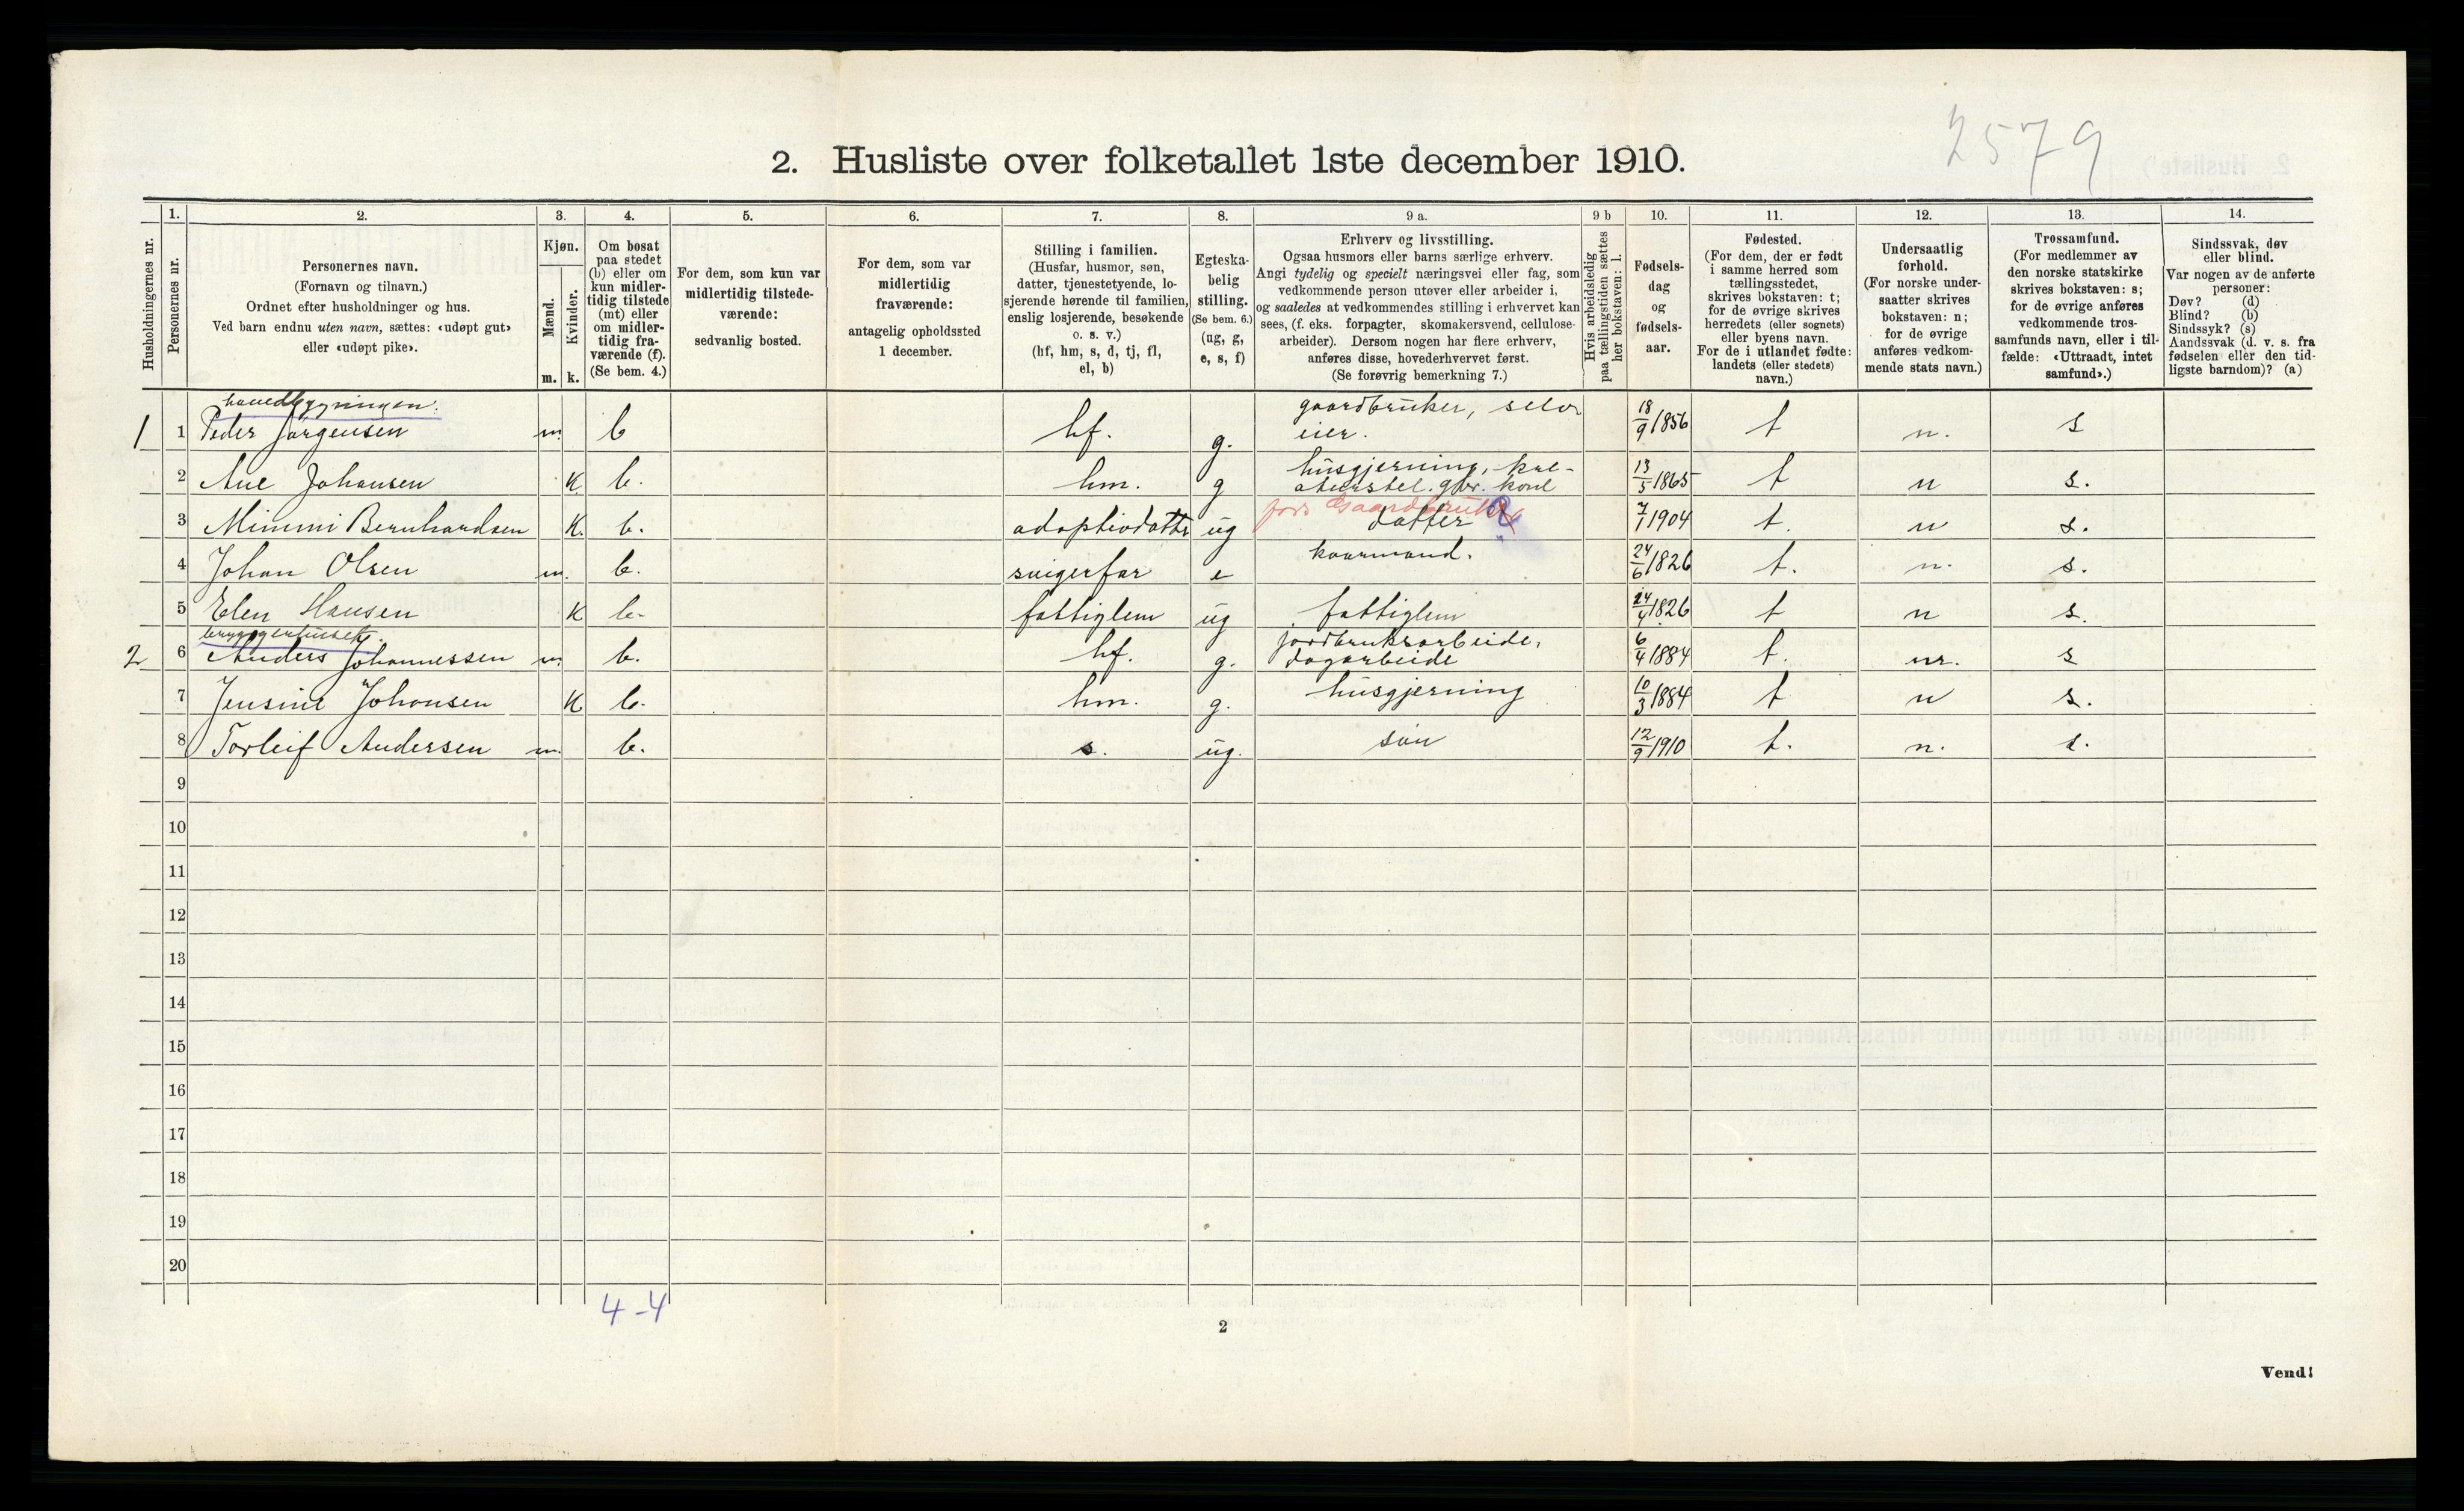 2579
2. Husliste over folketallet 1ste december 1910.
1. 2. 3. 4. 5. 6. 7. 8. 9 a. 9 b 10. 11. 12. 13. 14.
Husholdningernes nr.
Personernes nr.
Personernes navn.
(Fornavn og tilnavn.)
Ordnet efter husholdninger og hus.
Ved barn endnu uten navn, sættes: «udøpt gut»
eller «udøpt pike».
Kjøn.
Mænd.
Kvinder.
m. k.
Om bosat
paa stedet
(b) eller om
kun midler-
tidig tilstede
(mt) eller
om midler-
tidig fra-
værende (f).
(Se bem. 4.)
For dem, som kun var
midlertidig tilstede-
værende:
sedvanlig bosted.
For dem, som var
midlertidig
fraværende:
antagelig opholdssted
1 december.
Stilling i familien.
(Husfar, husmor, søn,
datter, tjenestetyende, lo-
sjerende hørende til familien,
enslig losjerende, besøkende
o. s. v.)
(hf, hm, s, d, tj, fl,
el, b)
Egteska-
belig
stilling.
(Se bem. 6.)
(ug, g,
e, s, f)
Erhverv og livsstilling.
Ogsaa husmors eller barns særlige erhverv.
Angi tydelig og specielt næringsvei eller fag, som
vedkommende person utøver eller arbeider i,
og saaledes at vedkommendes stilling i erhvervet kan
sees, (f. eks. forpagter, skomakersvend, cellulose-
arbeider). Dersom nogen har flere erhverv,
anføres disse, hovederhvervet først.
(Se forøvrig bemerkning 7.)
Hvis arbeidsledig
paa tællingstiden sættes
her bokstaven: l.
Fødsels-
dag
og
fødsels-
aar.
Fødested.
(For dem, der er født
i samme herred som
tællingsstedet,
skrives bokstaven: t;
for de øvrige skrives
herredets (eller sognets)
eller byens navn.
For de i utlandet fødte:
landets (eller stedets)
navn.)
Undersaatlig
forhold.
(For norske under-
saatter skrives
bokstaven: n;
for de øvrige
anføres vedkom-
mende stats navn.)
Trossamfund.
(For medlemmer av
den norske statskirke
skrives bokstaven: s;
for de øvrige anføres
vedkommende tros-
samfunds navn, eller i til-
fælde: «Uttraadt, intet
samfund».)
Sindssvak, døv
eller blind.
Var nogen av de anførte
personer:
Døv? (d)
Blind? (b)
Sindssyk? (s)
Aandssvak (d. v. s. fra
fødselen eller den tid-
ligste barndom)? (a)
hovedbygningen.
1 1 Peder Jørgensen m. b hf. g. gaardbruker, selv eier. 18/9 1856 t n. s
2 Ane Johansen K b. hm. g husgjerning, kre- aturstel. 13/5 1865 t n s.
3 Mimmi Bernhardsen K. b. adoptivdatter ug fors Gaardbruker datter 7/1 1904 t. n s.
4 Johan Olsen m. b. svigerfar e kaarmand. 24/6 1826 t. n. s.
5 Elen Hansen K b. fattiglem ug fattiglem 24/4 1826 t n s.
bryggerhuset.
2 6 Anders Johannessen m. b. hf. g. jordbruksarbeide, dagarbeide 6/4 1884 t. n. s
7 Jensine Johansen K b. hm. g. husgjerning 10/3 1884 t n s.
8 Torleif Andersen m. b. s. ug. søn 12/9 1910 t. n. s.
9
10
11
12
13
14
15
16
17
18
19
20
4-4
2
Vend!